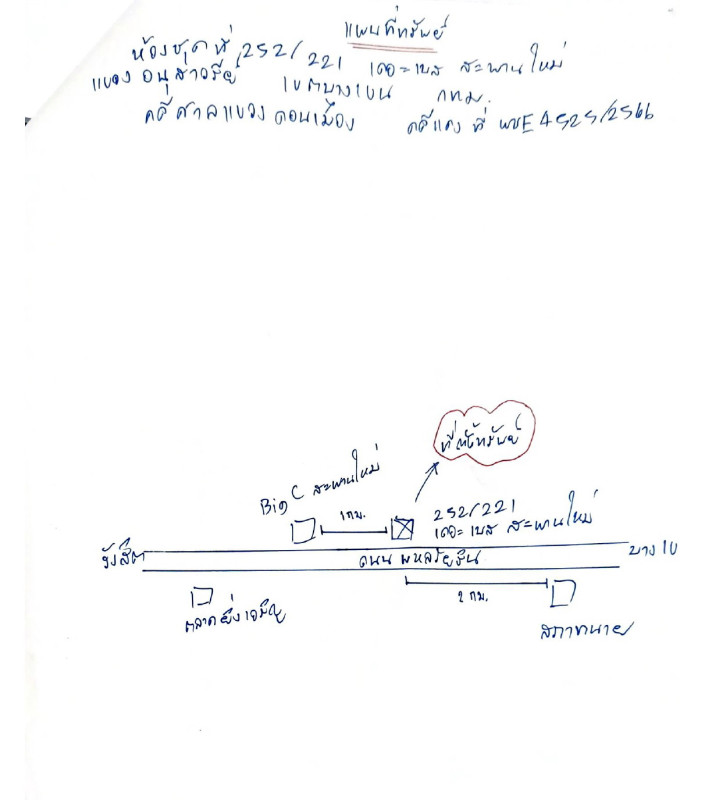 แผนที่ทรัพย์
ห้องชุดที่ 252/221 เดอะเบส สะพานใหม่
แขวง อนุสาวรีย์ เขตบางเขน กทม.
คดีศาลแขวง ดอนเมือง คดีแดง ที่ ผบE4525/2566
ที่ตั้งทรัพย์
Big C สะพานใหม่
1 กม.
252/221
เดอะ เบส สะพานใหม่
รังสิต
ถนน พหลโยธิน
บางเข
2 กม.
ตลาดยิ่งเจริญ
สภาทนาย